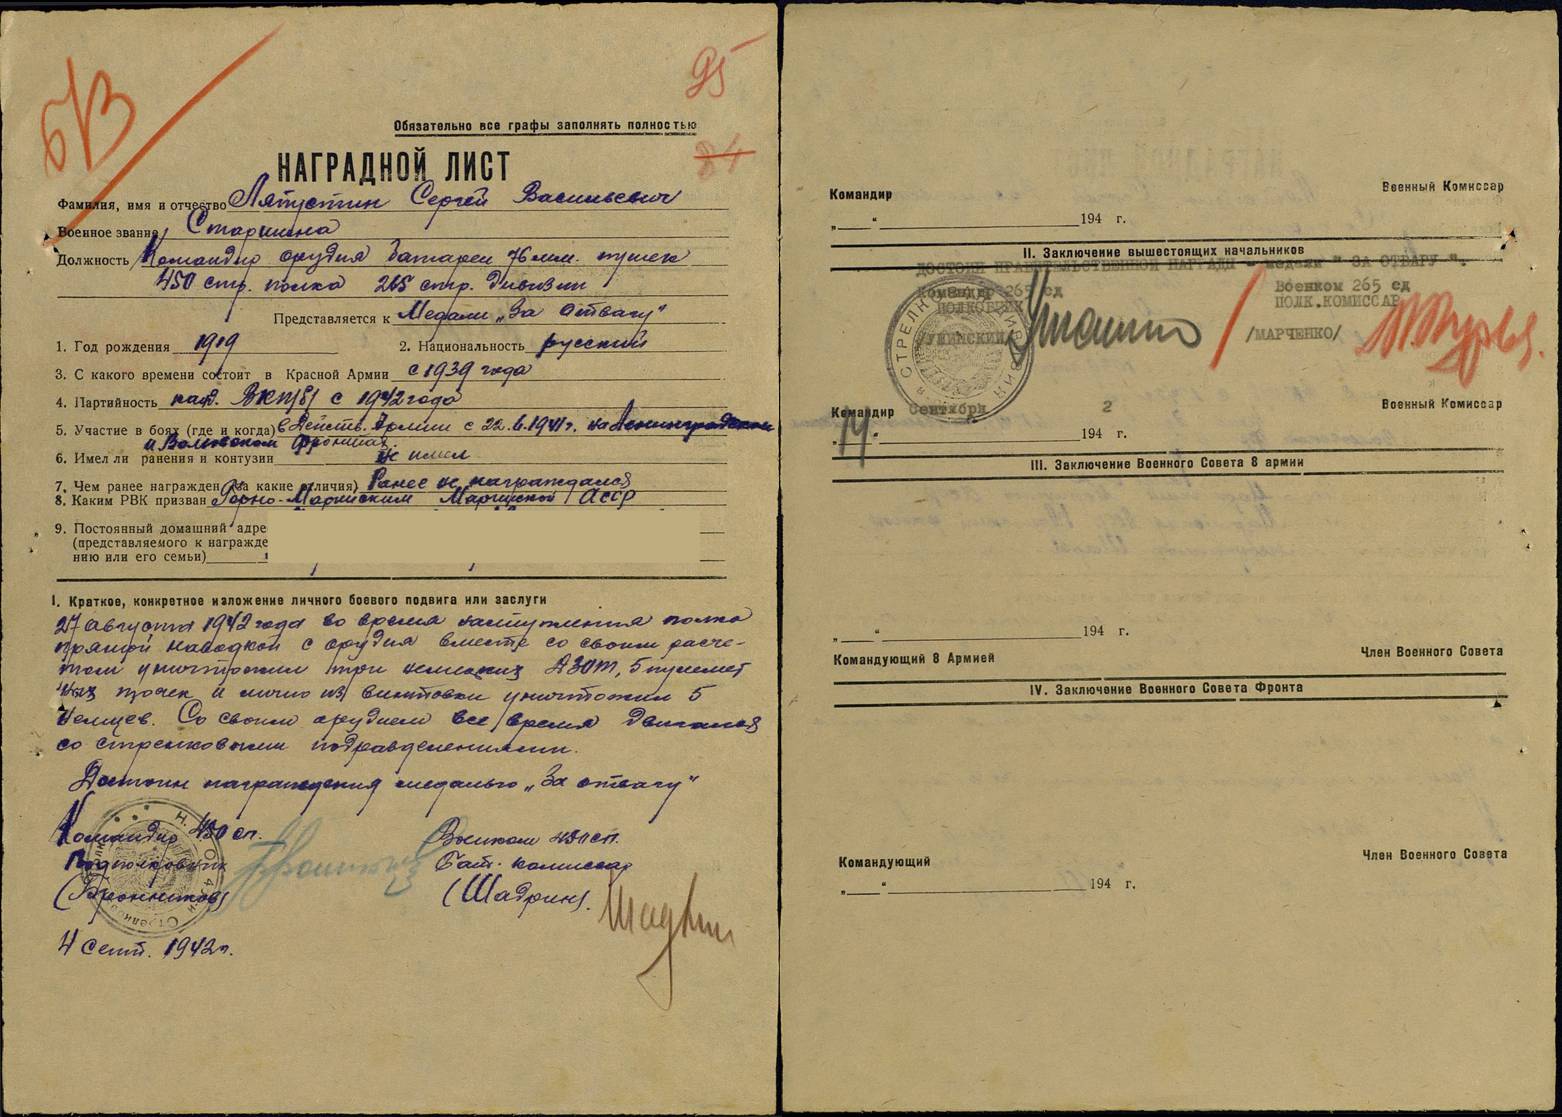 673
95
84
Обязательно все графы заполнять полностью
НАГРАДНОЙ ЛИСТ
Фамилия, имя и отчество Ляпустин Сергей Васильевич
Военное звание Старшина
Должность Командир орудия батареи 76 мм. пушек
450 стр. полка 265 стр. дивизии
Представляется к Медали „За Отвагу"
1. Год рождения 1919 2. Национальность русский
3. С какого времени состоит в Красной Армии с 1939 года
4. Партийность канд. ВКП(б) с 1942 года
5. Участие в боях (где и когда) в Действ. Армии с 22.6.1941г. на Ленинградском
и Волховском фронтах.
6. Имел ли ранения и контузии не имел
7. Чем ранее награжден (за какие отличия) Ранее не награждался
8. Каким РВК призван Горно-Марийским Марийской АССР
9. Постоянный домашний адре
(представляемого к награжде
нию или его семьи)
I. Краткое, конкретное изложение личного боевого подвига или заслуги
27 августа 1942 года во время наступления полка
прямой наводкой с орудия вместе со своим расче-
том уничтожил три немецких ДЗОТ, 5 пулемет
ных точек и лично из винтовки уничтожил 5
немцев. Со своим орудием все время двигался
со стрелковыми подразделениями.
Достоин награждения медалью „За отвагу"
Командир 450 сп. Военком 450 сп.
Подполковник Бат. комиссар
(Бронников) (Шадрин).
4 сент. 1942 г.
Командир Военный Комиссар
„ “ 194 г.
II. Заключение вышестоящих начальников
ДОСТОИН ПРАВИТЕЛЬСТВЕННОЙ НАГРАДЫ - медали " ЗА ОТВАГУ ".
Командир 265 сд Военком 265 сд
ПОЛКОВНИК ПОЛК.КОМИССАР
/УШИНСКИЙ/ /МАРЧЕНКО/
Командир Сентябрь 2 Военный Комиссар
„14“ 194 г.
III. Заключение Военного Совета 8 армии
„ “ 194 г.
Командующий 8 Армией Член Военного Совета
IV. Заключение Военного Совета Фронта
Командующий Член Военного Совета
„ “ 194 г.